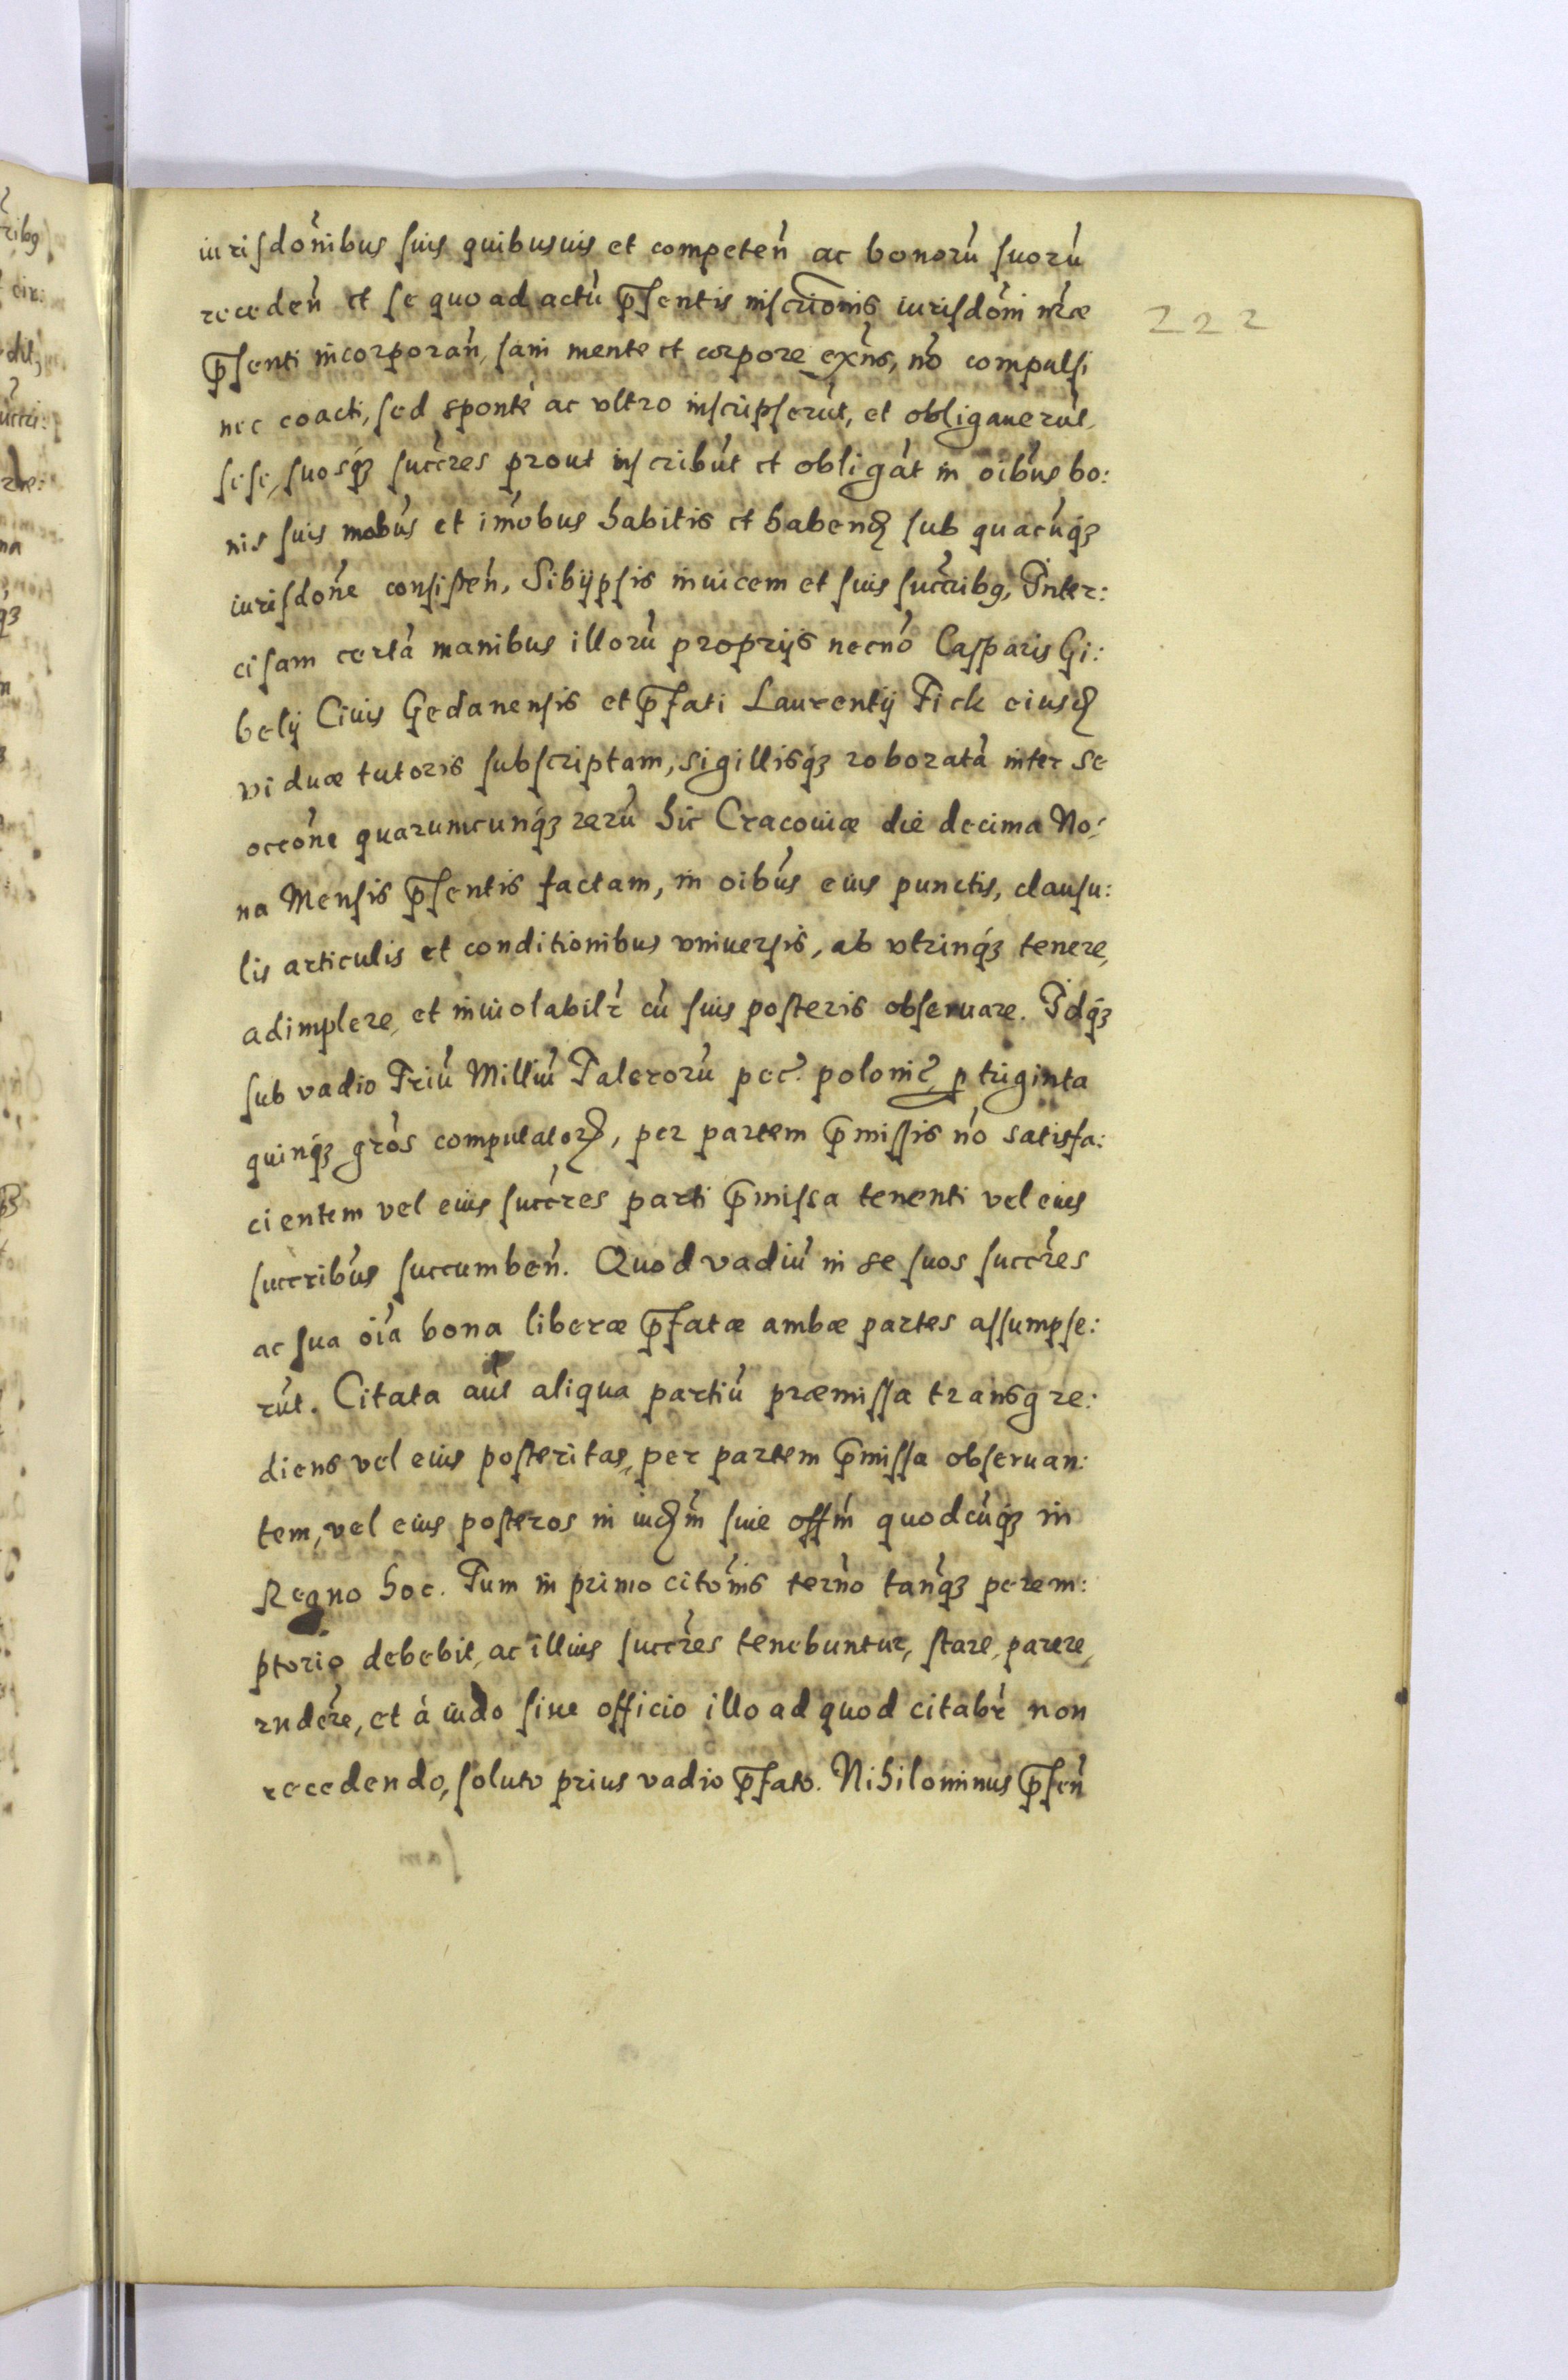 iurisdoñibus suis quibusuis et competeñ ac bonorũ suorũ
recedeñ et se quo ad actũ p̃sentis inscri͠onis iurisdoñi nr̃æ
222
p̃senti incorporañ, sani mente et corpore exñs, nõ compulsi
nec coacti, sed sponte ac vltro inscripserũt, et obligauerũt
sese, suosq́ꝫ succr̃es prout inscribũt et obligãt in oĩbus bo:
nis suis mobũs et im̃obus habitis et habenꝺ sub quacũq́ꝫ
iurisdoñe consisteñ, Sibijpsis inuicem et suis succr̃ibꝯ, Inter:
cisam certã manibus illorũ proprijs necnõ Casparis Gi:
belij Ciuis Gedanensis et p̃fati Laurentij Fick eiusꝺ
viduæ tutoris subscriptam, sigillisq́ꝫ roboratã inter se
occoñe quarumcunq́ꝫ rerũ hic Cracouiæ die decima No:
na Mensis p̃sentis factam, in oĩbus eius punctis, clausu:
lis articulis et conditionibus vniuersis, ab vtrinq́ꝫ tenere,
adimplere, et inuiolabilr̃ cũ suis posteris obseruare. Idq́ꝫ
sub vadio Triũ Milliũ Talerorũ pec̃. polonic̃, ꝑ triginta
quinq́ꝫ gros̃ computatorꝝ, per partem p̃missis nõ satisfa:
cientem vel eius succr̃es parti p̃missa tenenti vel eius
succribũs succumbeñ. Quod vadiũ in se suos succr̃es
ac sua oĩa bona liberæ p̃fatæ ambæ partes assumpse:
rũt. Citata aũt aliqua partiũ præmissa transgre:
diens vel eius posteritas, per partem p̃missa obseruan:
tem, vel eius posteros in iuꝺm̃ siue offm̃ quodcũq́ꝫ in
Regno hoc. Tum in primo citoñis terño tanq̃ꝫ perem:
ptorio debebit, ac illius succr̃es tenebuntur, stare, parere,
rndẽre, et à iudo siue officio illo ad quod citabr̃ non
recedendo, soluto prius vadio p̃fato. Nihilominus p̃señ